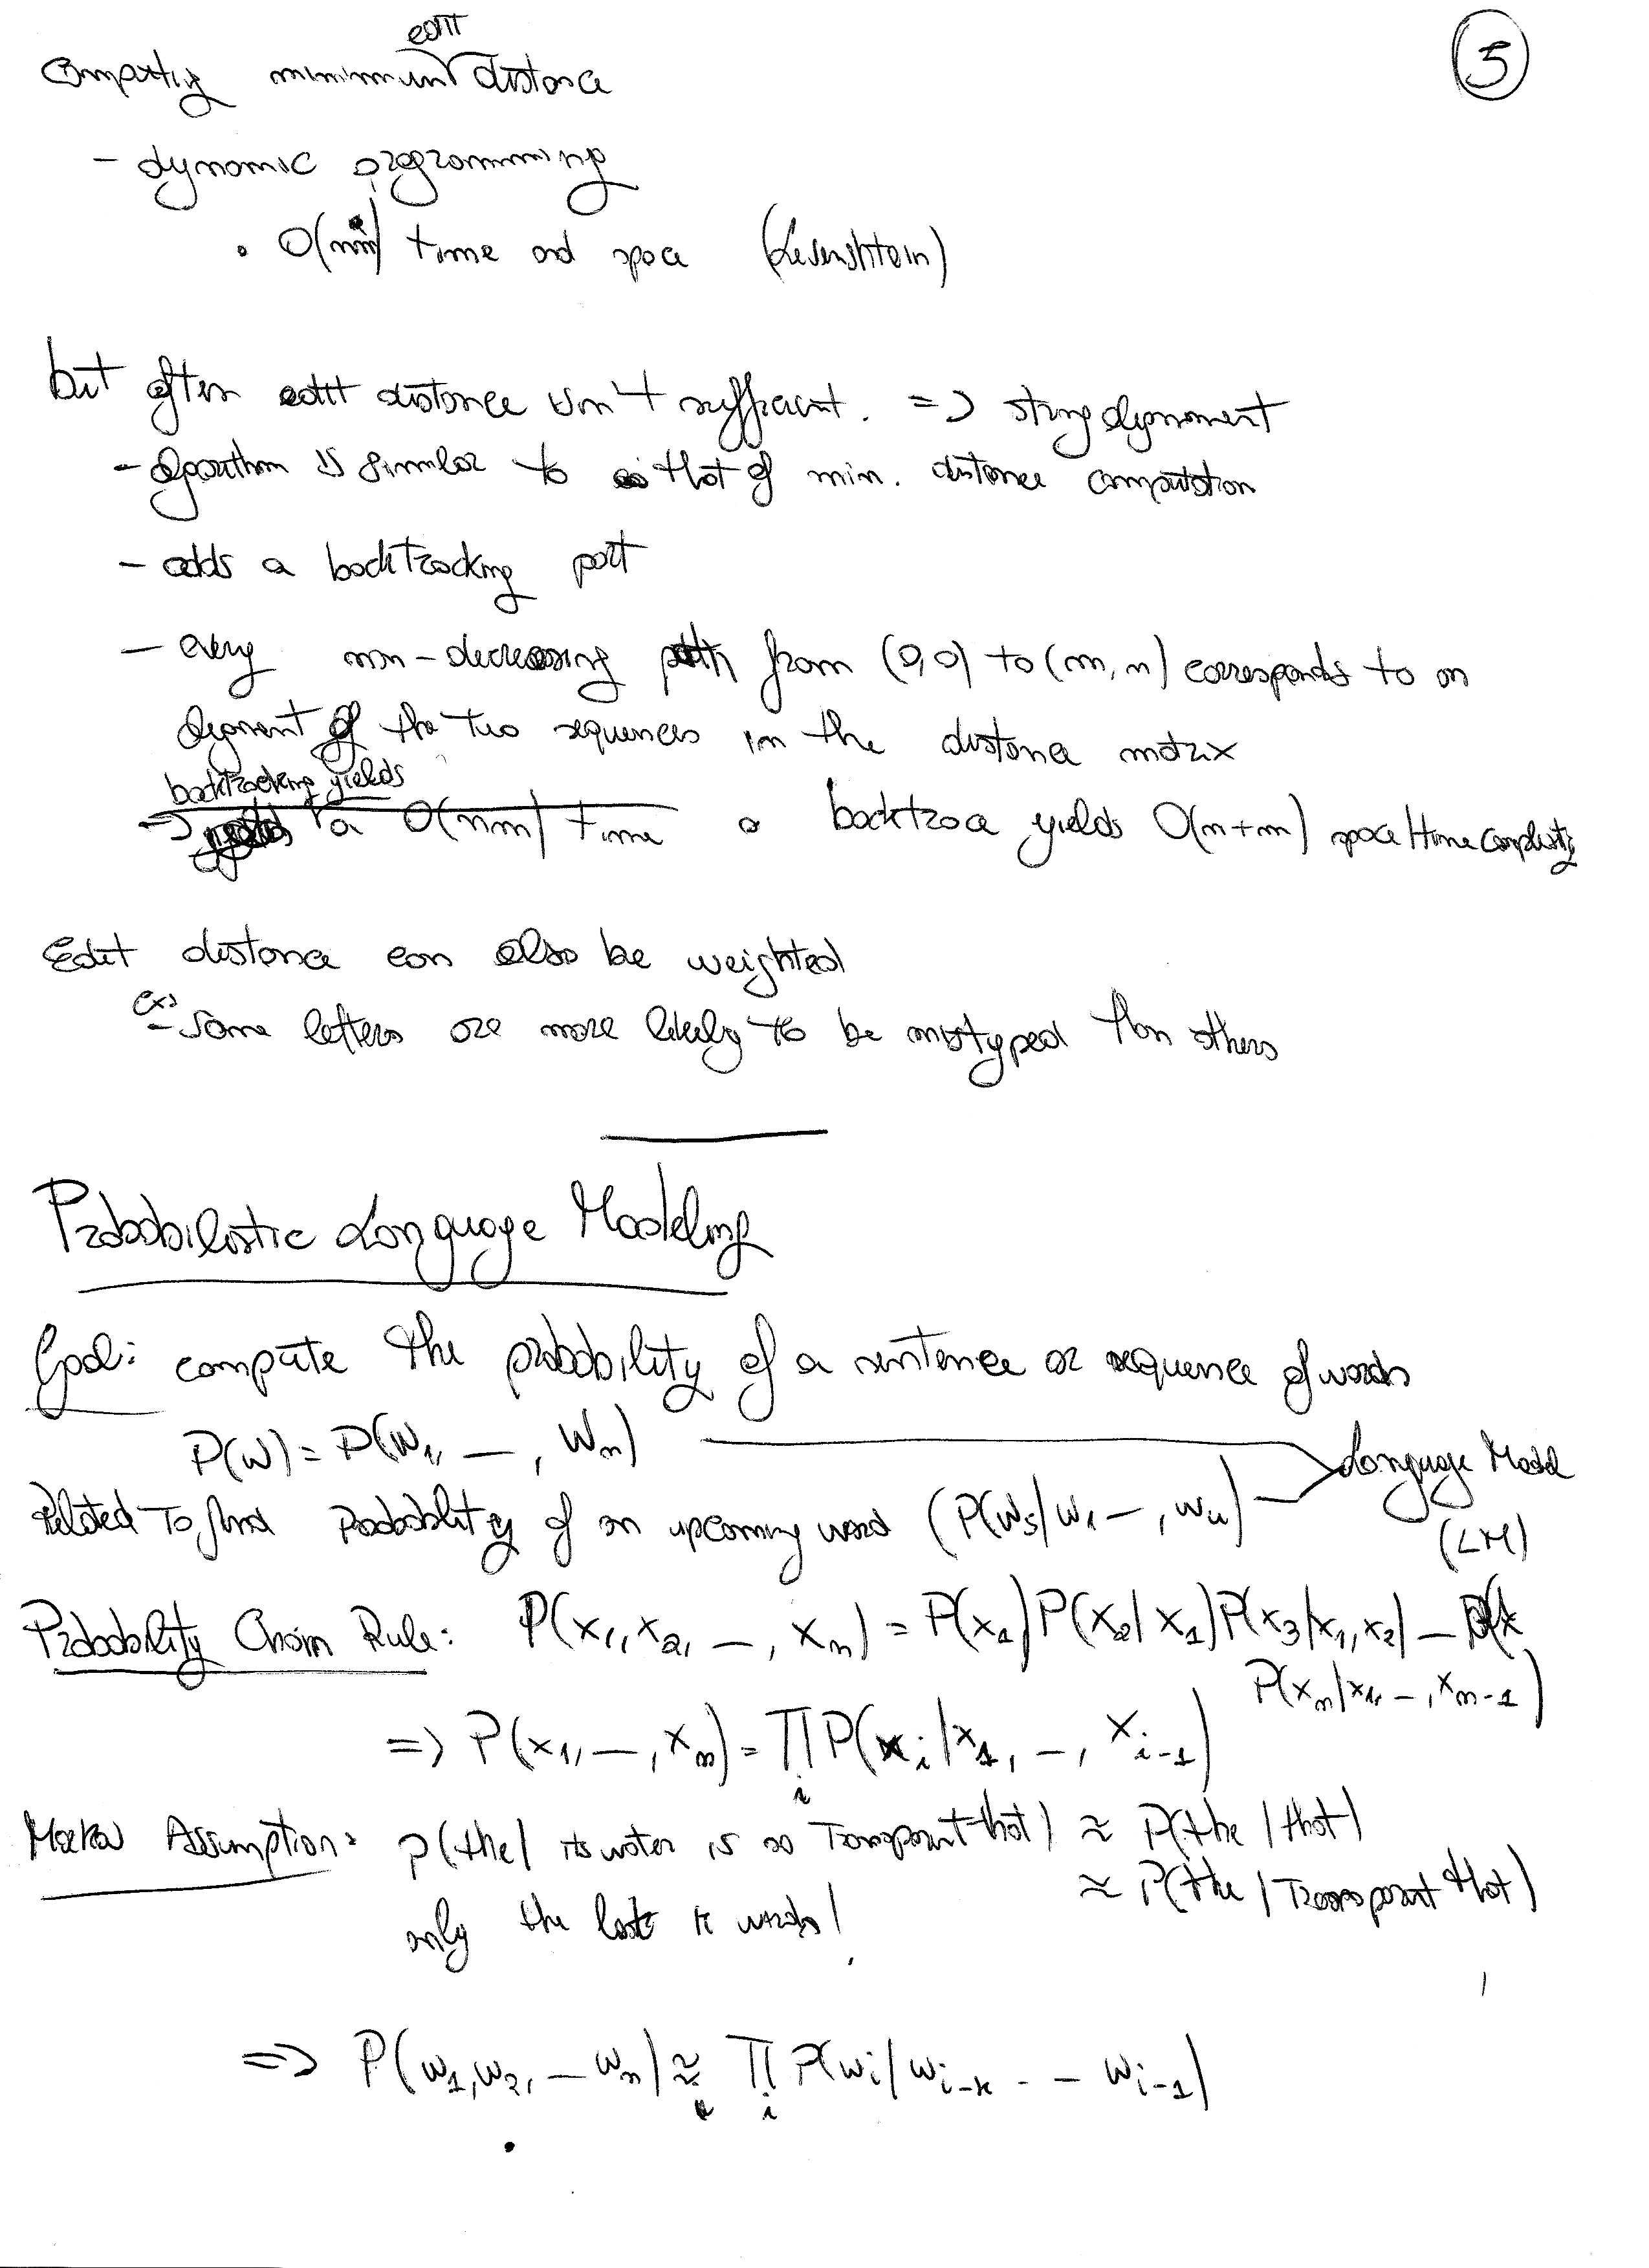 5
Computing minimum edit distance
- dynamic programming
• O(nm) time and space (Levenshtein)
but often edit distance isn't sufficient. => string alignment
- algorithm is similar to that of min. distance computation
- adds a backtracking part
- every non-decreasing path from (0,0) to (m,n) corresponds to an
alignment of the two sequences in the distance matrix
backtracking yields
-> a O(nm) time • backtrace yields O(n+m) space/time complexity
Edit distance can also be weighted
ex:
- some letters are more likely to be mistyped than others
Probabilistic Language Modeling
Goal: compute the probability of a sentence or sequence of words
P(W) = P(w₁, —, wₙ)
Language Model
Related to find probability of an upcoming word (P(w₅|w₁ —, w₄)
(LM)
Probability Chain Rule: P(x₁, x₂, —, xₙ) = P(x₁)P(x₂|x₁)P(x₃|x₁,x₂) —
P(xₙ|x₁, —, xₙ₋₁)
=> P(x₁, —, xₙ) = ∏ᵢ P(xᵢ|x₁, —, xᵢ₋₁)
Markov Assumption: P(the| its water is so transparent that) ≈ P(the|that)
≈ P(the|transparent that)
only the last k words!
=> P(w₁,w₂, — wₙ) ≈ ∏ᵢ P(wᵢ|wᵢ₋ₖ - - wᵢ₋₁)